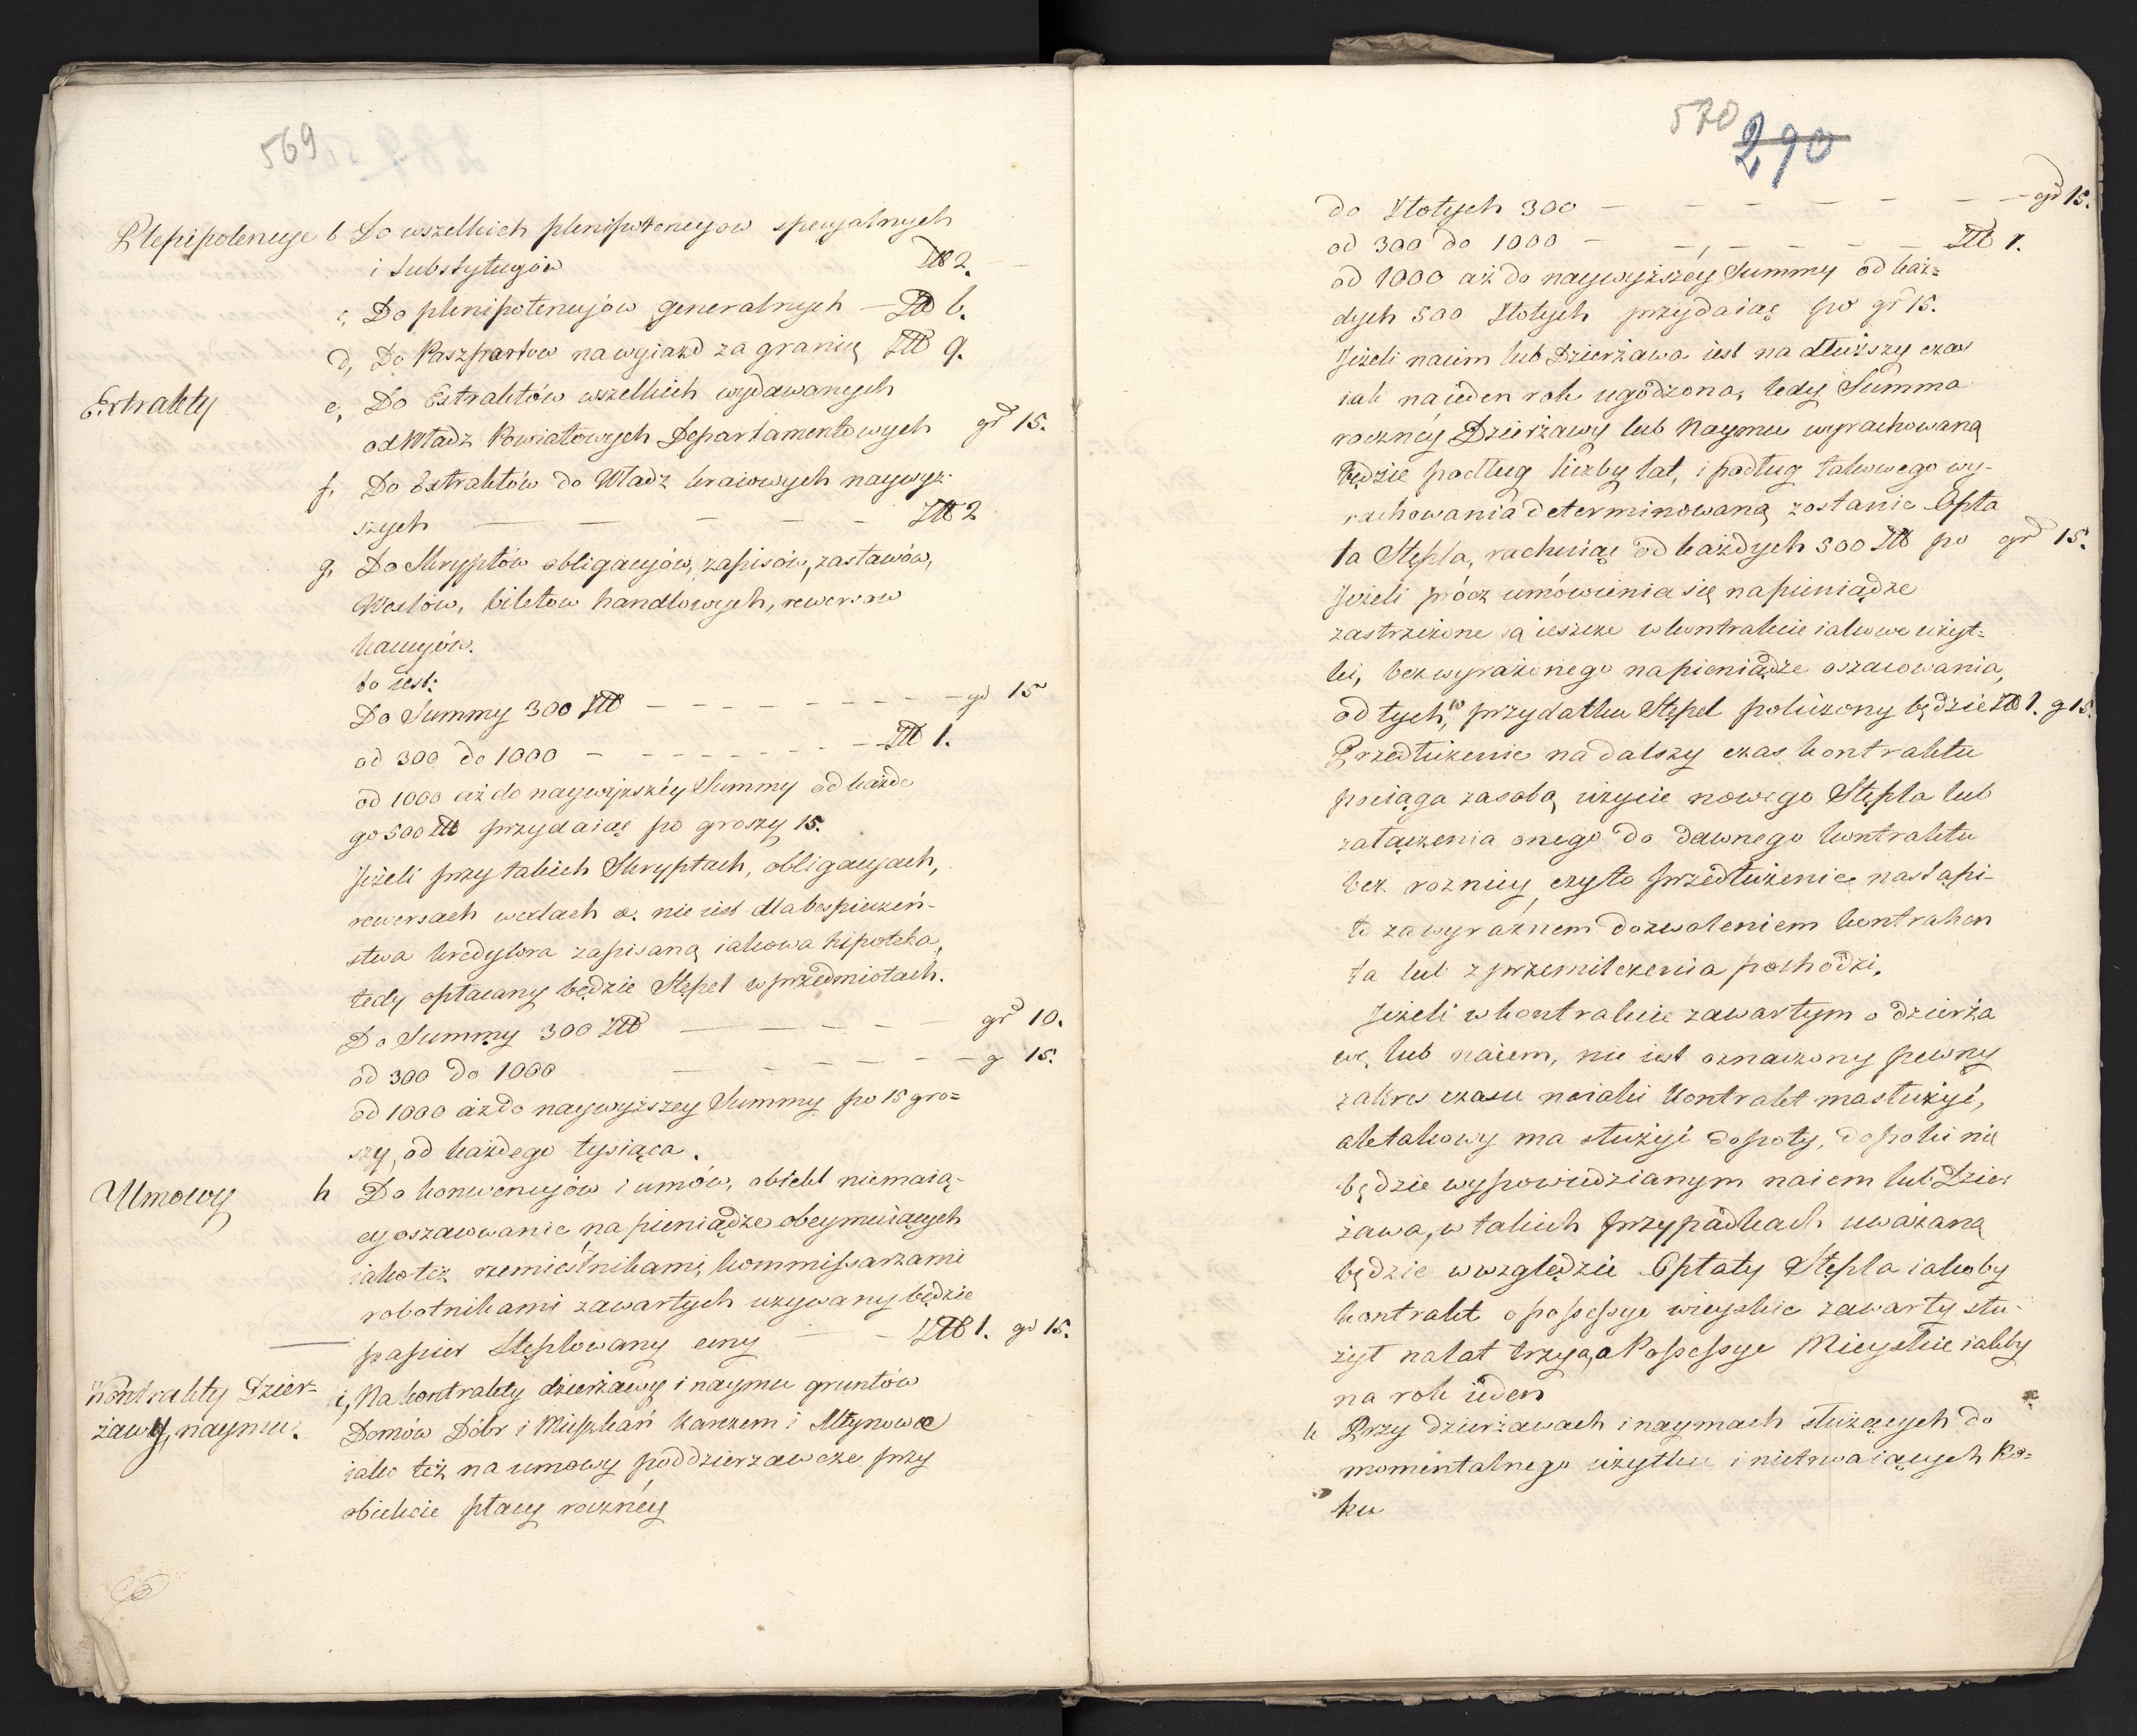 569
Plepipotencye b Do wszelkich plenipotencyow specyalnych
i substytucyów Złł 2.
c, Do plenipotencyów generalnych — Złł 6.
d, Do Paszpartow na wyiazd za granicę Złł 9.
Extrakty e, Do Extraktów wszelkich wydawanych
od Władz Powiatowych Departamentowych gr 15.
f. Do Extraktów do Władz kraiowych naywyż-
szych — — — — — Złł 2
g. Do Skryptów obligacyów, zapisów, zastawów,
Wexlów, biletow handlowych, rewersow
kaucyjów.
to iest:
Do Summy 300 Złł — — — — — — — — gr 15
od 300 do 1000 — — — — — — — Złł 1.
od 1000 aż do naywyższéy Summy od każde
go 500 Złł przydaiąc po groszy 15.
Jeżeli przy takich Skryptach, obligacyach,
rewersach wexlach &. nie iest dla bespieczeń-
stwa kredytora zapisaną iakowa hipoteka,
tedy opłacany będzie Stępel w przedmiotach.
Do Summy 300 Złł — — — — — gr 10.
od 300 do 1000 — — — — — g 15.
od 1000 aż do naywyższey Summy po 15 gro-
szy, od każdego tysiąca.
Umowy h Do konwencyjów i umów, obiekt niemaią-
cy oszacowanie na pieniądze obeymuiących
iako też rzemieślnikami, kommissarzami
robotnikami zawartych uzywany będzie
papier Stęplowany ceny — — Złł 1. gr 15.
Kontrakty Dzier- i, Na kontrakty dzierżawy i naymu gruntów
żawy, naymu. Domów Dóbr i Mieszkań karczem i Młynowe
iako też na umowy poddzierzawcze przy
obiekcie płacy rocznéy
570
290
do Złotych 300 — — — — — — — gr 15.
od 300 do 1000 — — — — — — Złł 1.
od 1000 aż do naywyższéy Summy od każ-
dych 500 Złotych przydaiąc po gr 15.
Jeżeli naiem lub Dzierżawa iest na dłuższy czas
iak na ieden rok ugodzona, tedy Summa
roczney Dzierżawy lub Naymu wyrachowaną
będzie podług liczby lat, i podług takowego wy-
rachowania determinowaną zostanie Opła
ta Stępla, rachuiąc od każdych 500 Złł po gr 15.
Jeżeli prócz umówienia się na pieniądze
zastrzeżone są ieszcze w kontrakcie iakowe użyt-
ki, bez wyrażonego na pieniądze oszacowania,
od tych, przydatku Stępel policzony będzie Złł 1. g 15.
Przedłużenie na dalszy czas kontraktu
pociąga za sobą użycie nowego Stępla lub
załączenia onego do dawnego kontraktu
bez roznicy, czy to przedłużenie nastąpi-
ło za wyraźnem dozwoleniem kontrahen
ta lub z przemilczenia pochodzi.
Jeżeli w kontrakcie zawartym o dzierża
wę lub naiem, nie iest oznaczony pewny
zakres czasu na iaki kontrakt ma służyć,
ale takowy ma służyć dopoty, dopoki nie
będzie wypowiedzianym naiem lub Dzier
żawa, w takich przypadkach uważaną
będzie wwzględzie Opłaty Stępla iakoby
kontrakt o possessye wieyskie zawarty słu-
żył na lat trzy, a Possessye Mieyskie iakby
na rok ieden
k Przy dzierżawach i naymach służących do
momentalnego użytku i nietrwaiących Ro-
ku